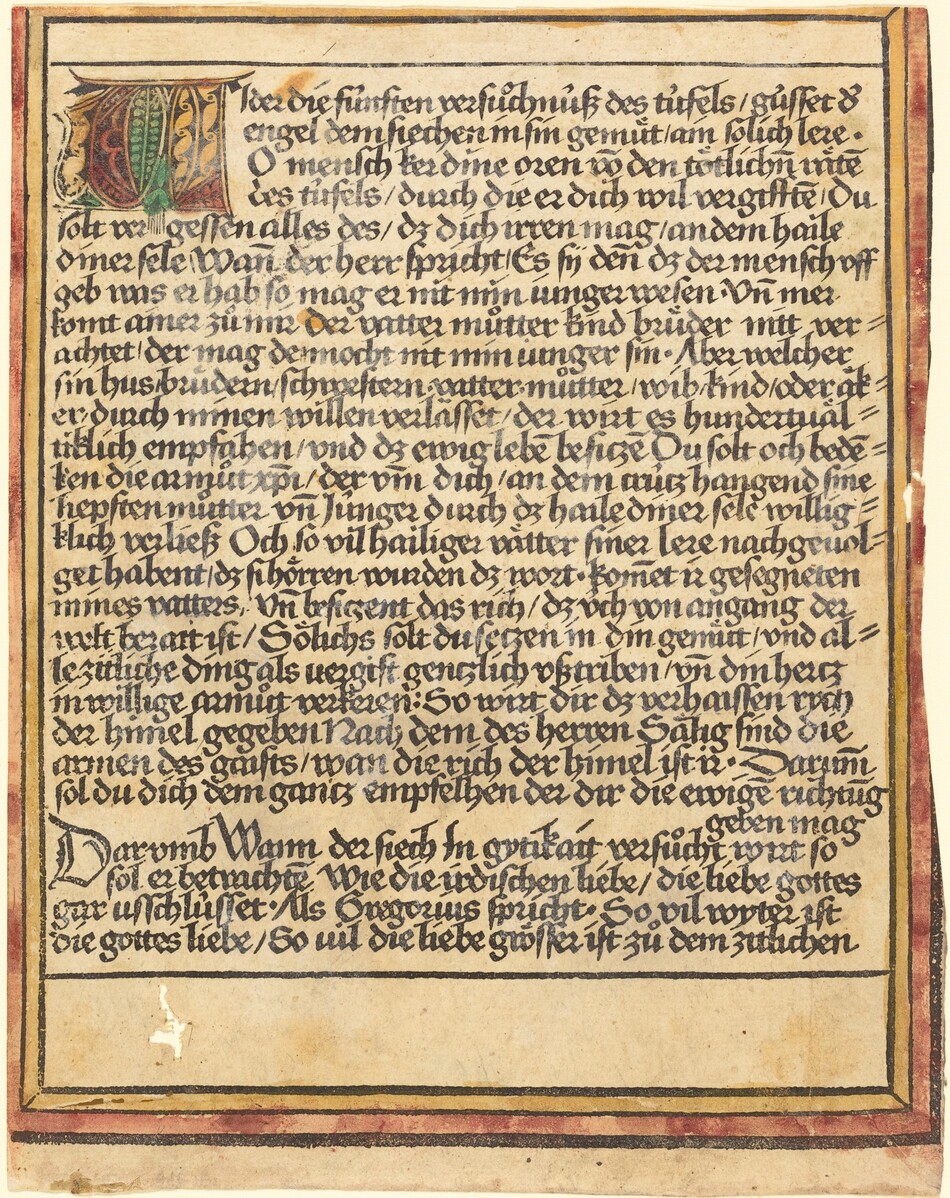 Wider die fúnften versůchnúß des túfels / gússet d᷒
engel dem siechen in sin gemüt / ain solich lere ·
O mensch ker dine oren võ den tötlichñ rätẽ
des túfels / durch die er dich wil vergifftẽ / Du
solt ver gessen alles des / dz dich irren mag / an dem haile
diner sele Wañ der herr spricht / Es sÿ deñ dz der mensch vff
geb was er hab so mag er nit min iunger wesen · Vñ mer
komt ainer zů mir der vatter můtter kind brüder nitt ver =
achtet / der mag dennocht nit min iunger sin · Aber welcher
sin hus / brüdern / schwestern vatter můtter / wib / kind / oder äk =
er / durch minen willen verlässet / der wirt es hundertuäl =
tiklich empfahen / vnd dz ewig lebẽ besiczẽ Du solt och bedẽ =
ken die armůt xp̃i / der vm̃ dich / an dem crútz hangend sine
liepsten můtter vñ Junger durch dz haile diner selẽ willig =
klich verließ Och so vil hailiger vätter siner lere nachgeuol =
get habent / dz si hörren wurden dz wort · kom̃et ir gesegneten
mines vatters, Vñ besiczent das rich / dz v́ch von angang der
welt berait ist / Sölichs solt du setzen in din gemütt / vnd al =
le zitliche ding als vergift gentzlich vßtriben / vñ din hertz
in willige armůt verkeren : So wirt dir dz verhaissen rych
der himel gegeben Nach dem des herren Sälig sind die
armen des gaists / wan die rich der himel ist ir · Darum̃
sol du dich dem gantz empfelhen der dir die ewigẽ richtũg
geben mag
Darvmb Wann der siech In gytikait versůcht wirt so
sol er betrachtẽ Wie die irdischen liebe / die liebe gottes
gar usschlússet · Als Gregorius spricht · So vil wyter ist
die gottes liebe / So uil die liebe grösser ist zů dem zitlichen